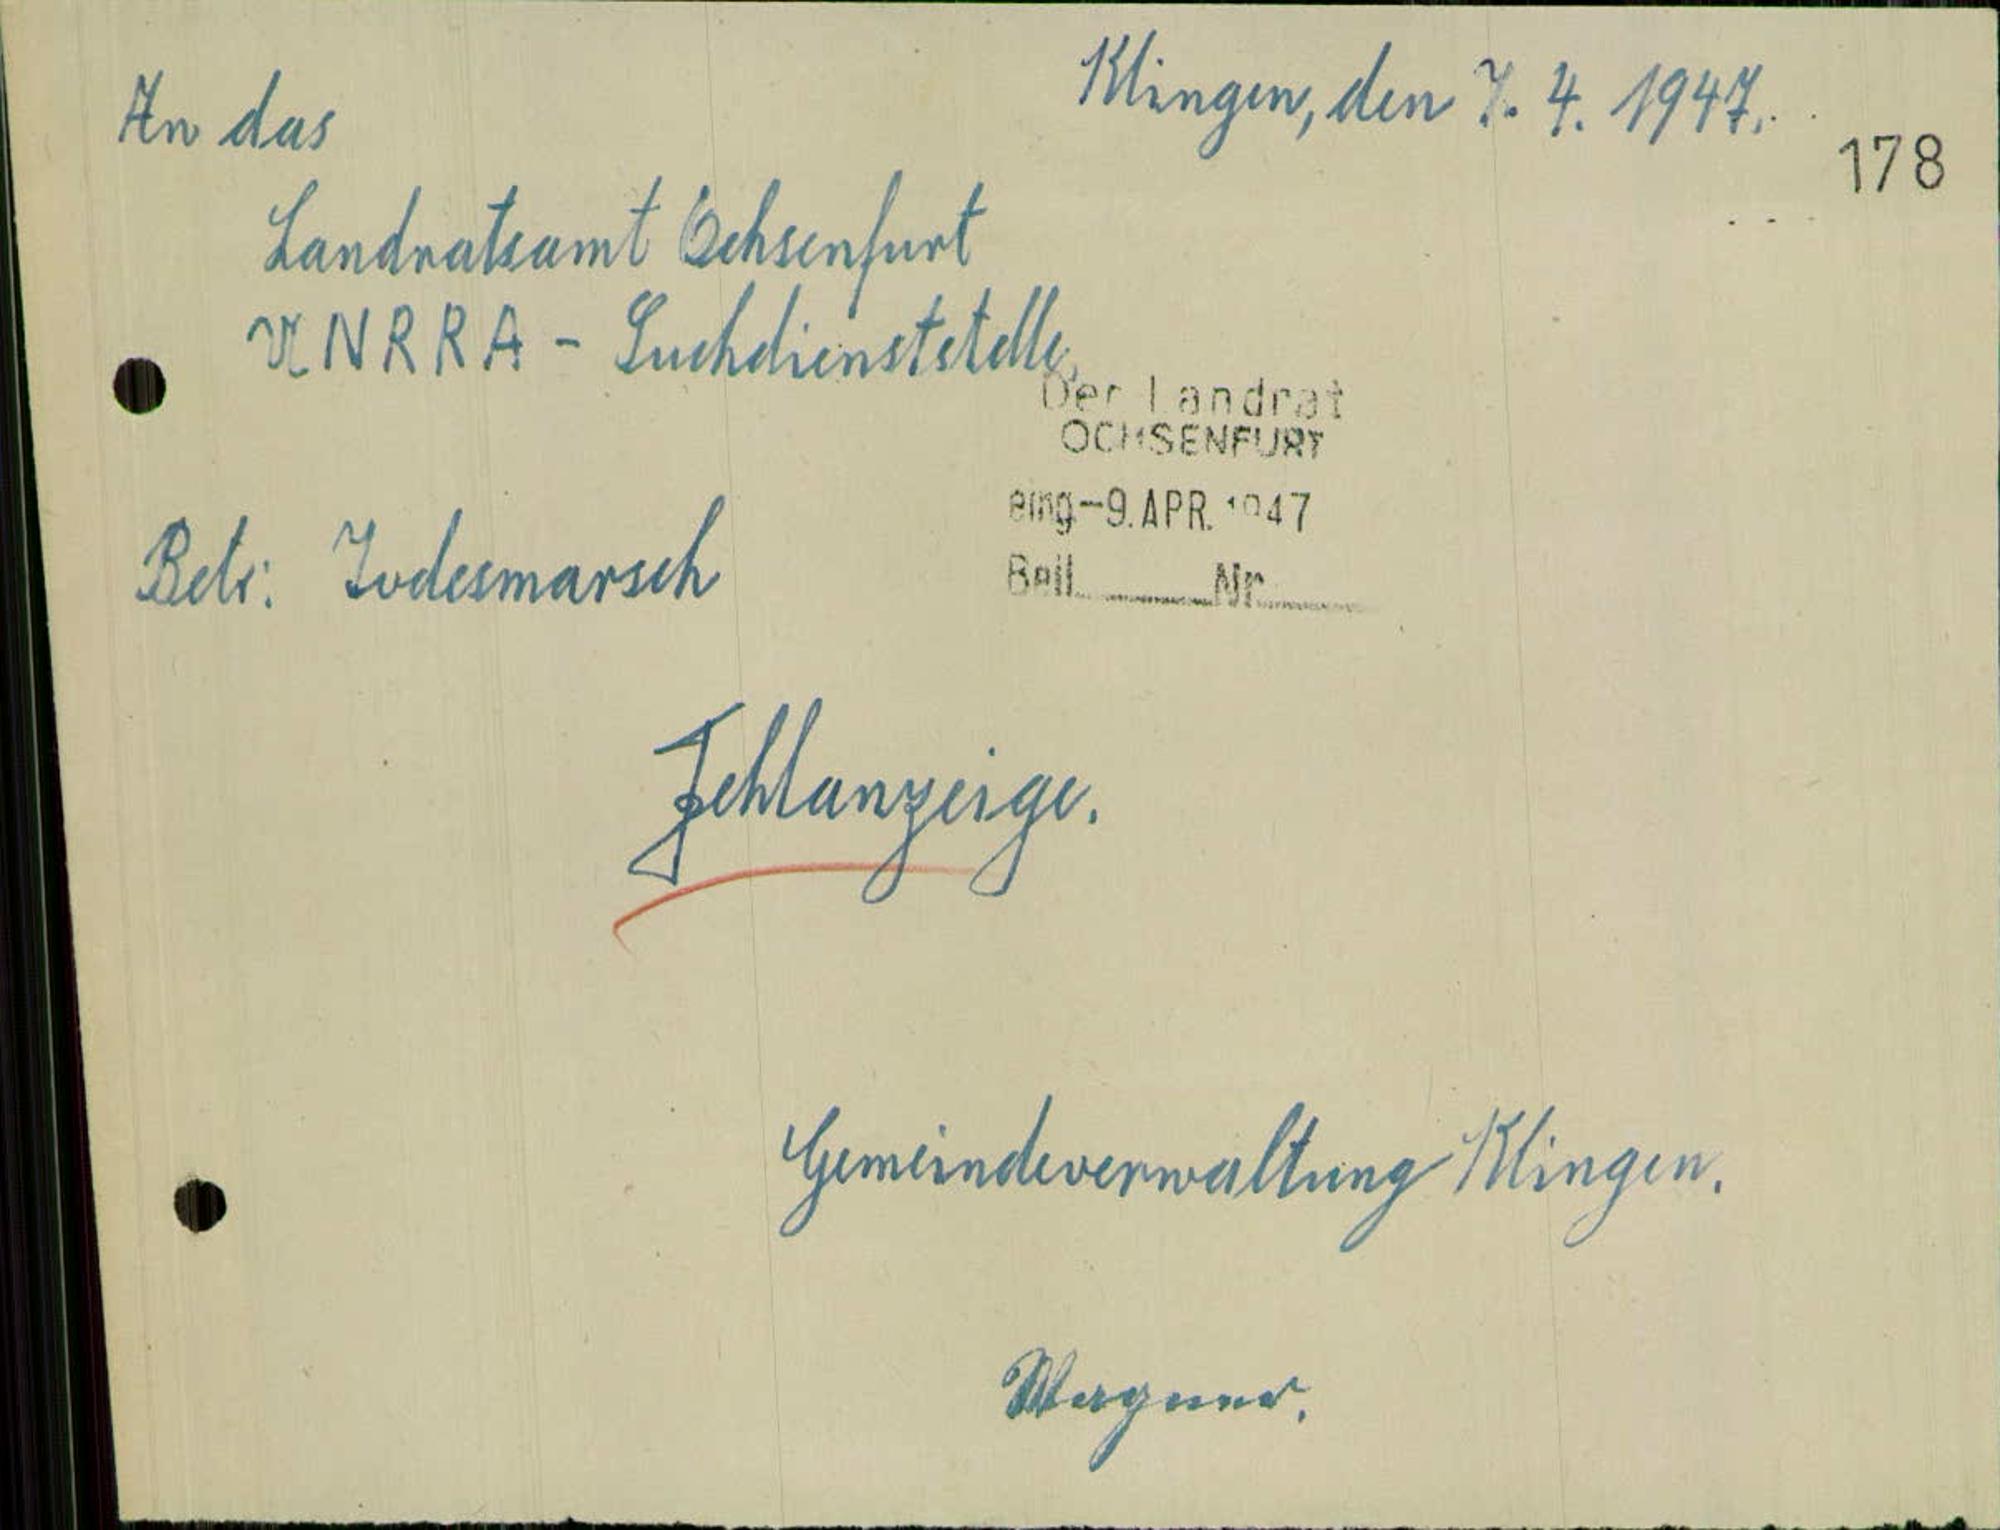 Klingen, den 7. 4. 1947.
178
An das
Landratsamt Ochsenfurt
UNRRA - Suchdienststelle,
Der Landrat
OCHSENFURT
eing. -9. APR. 1947
Beil. Nr.
Betr: Todesmarsch
Fehlanzeige.
Gemeindeverwaltung Klingen.
Wagner.